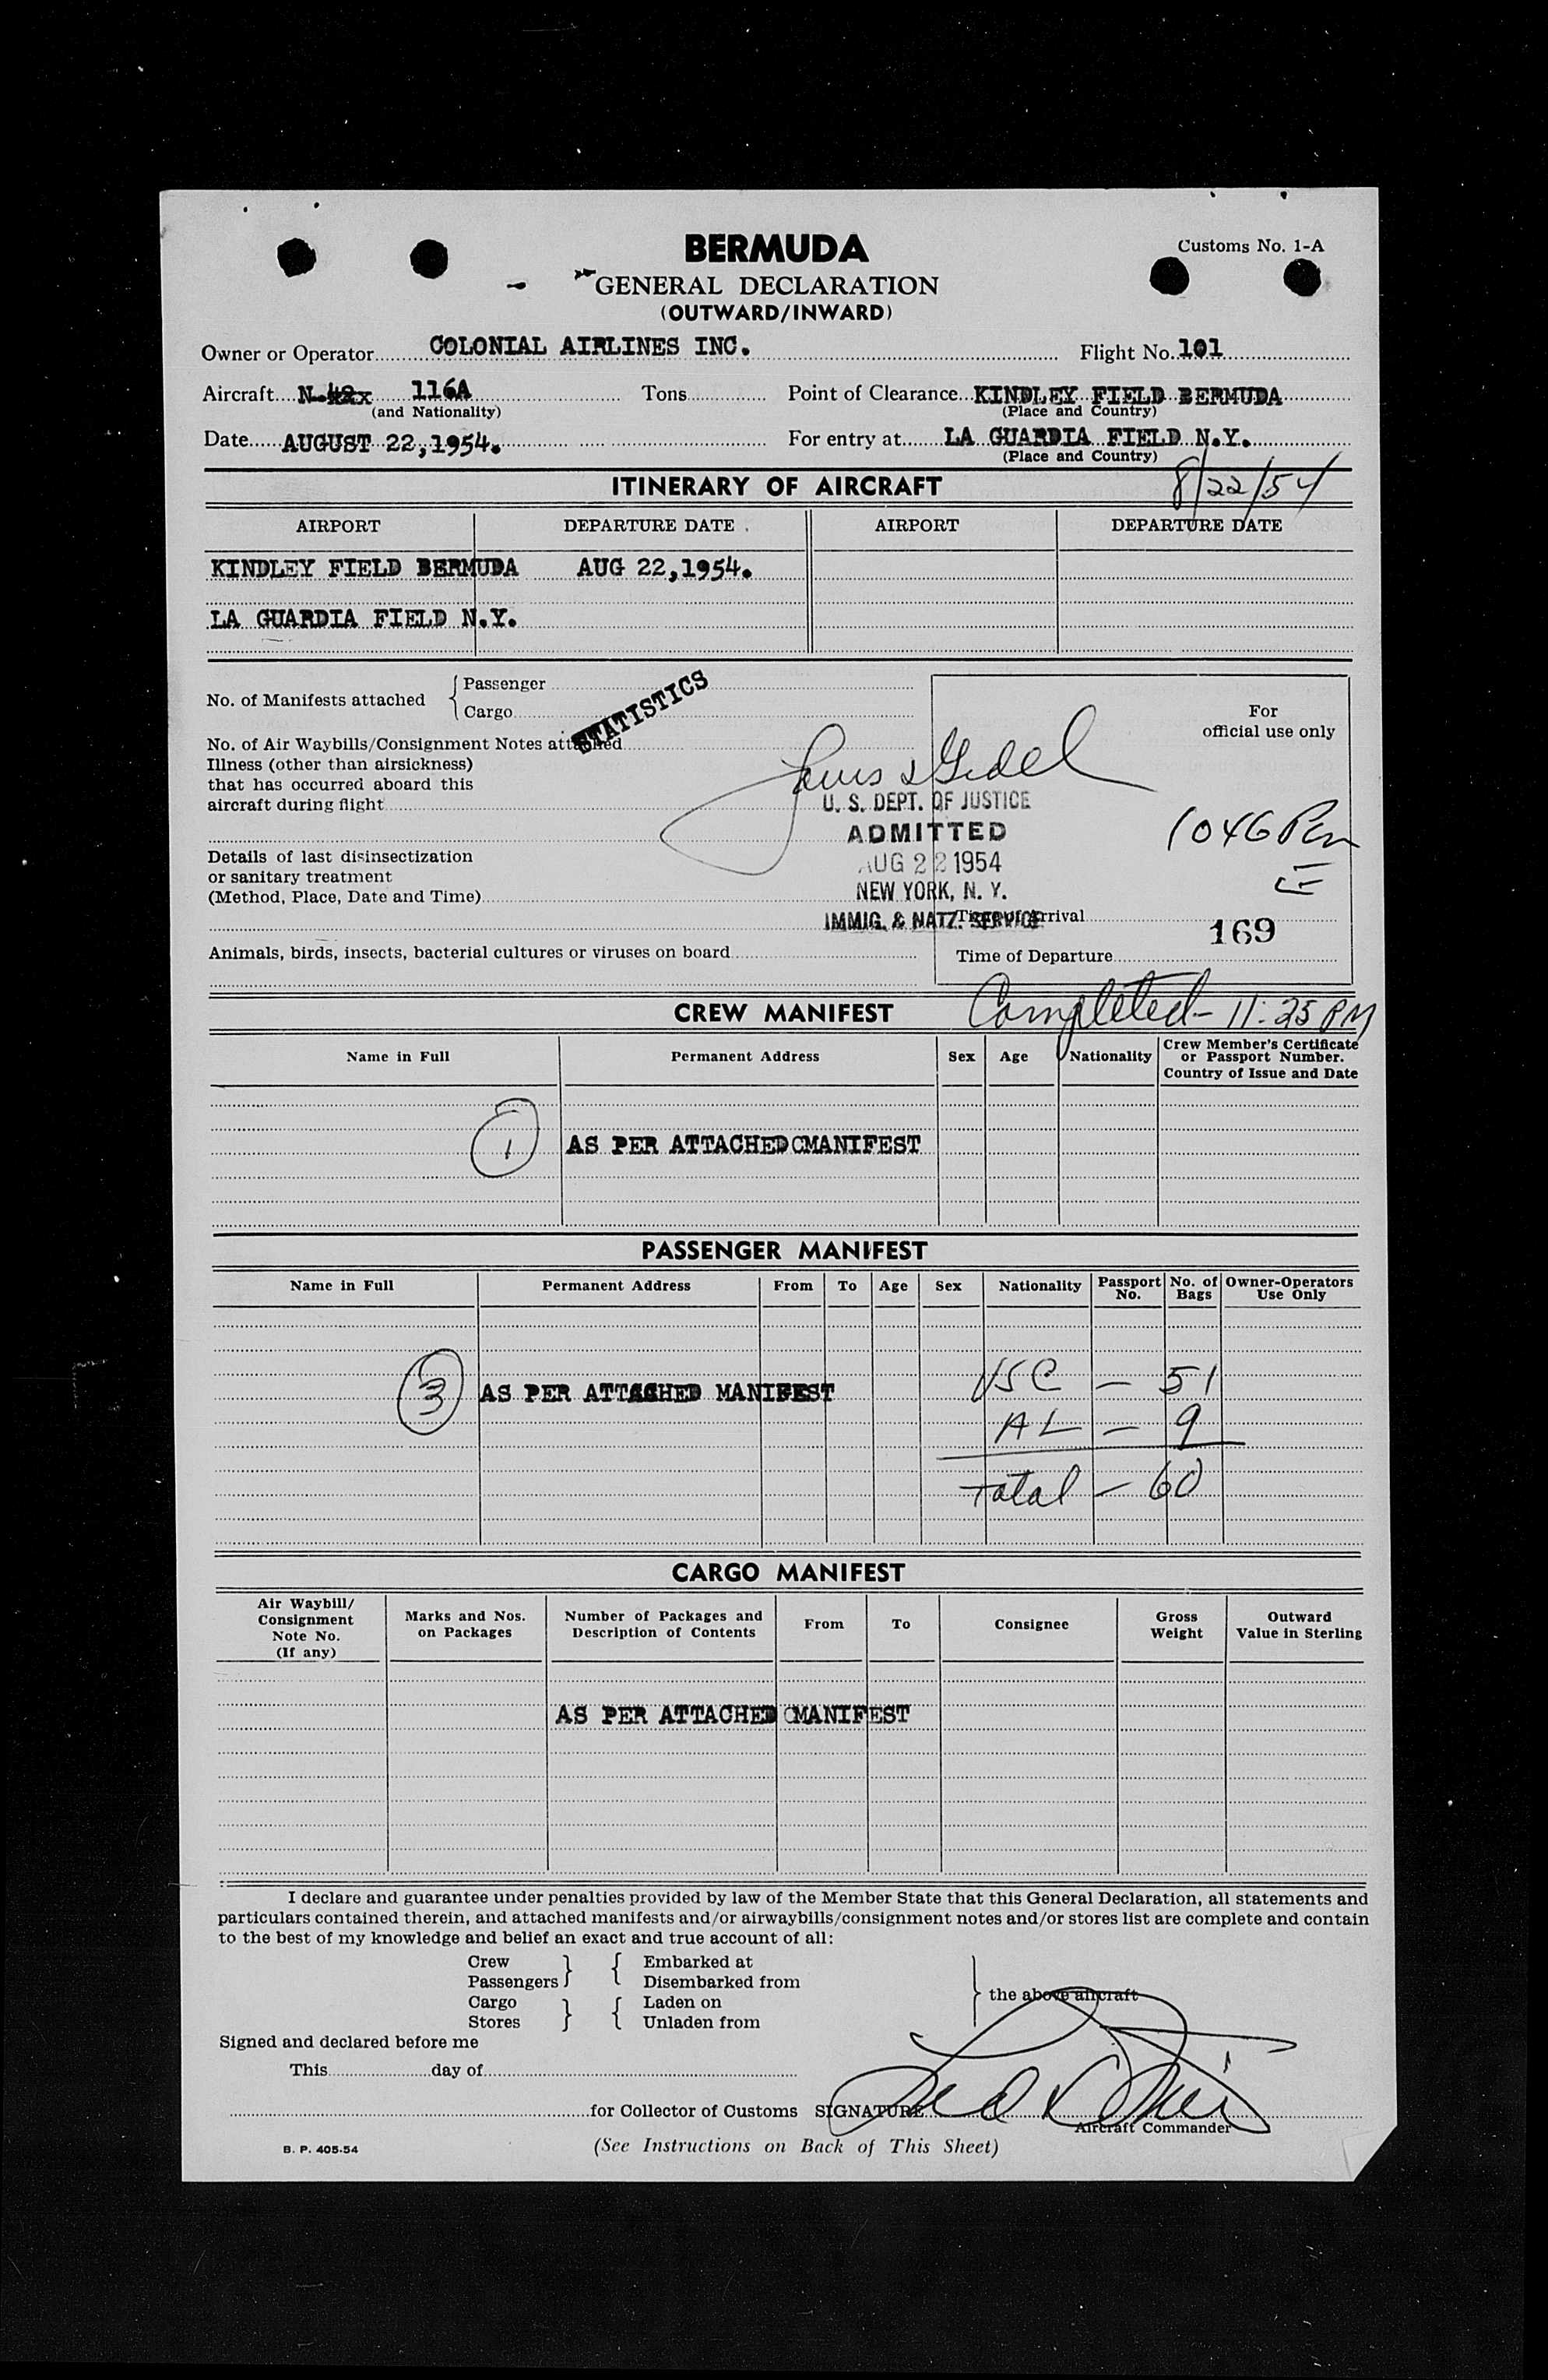 BERMUDA
Customs No. 1-A
GENERAL DECLARATION
(OUTWARD/INWARD)
Owner or Operator COLONIAL AIRLINES INC. Flight No. 101
Aircraft N 116A Tons Point of Clearance KINDLEY FIELD BERMUDA
(and Nationality) (Place and Country)
Date AUGUST 22,1954. For entry at LA GUARDIA FIELD N.Y.
(Place and Country)
8/22/54
ITINERARY OF AIRCRAFT
AIRPORT DEPARTURE DATE AIRPORT DEPARTURE DATE
KINDLEY FIELD BERMUDA AUG 22,1954.
LA GUARDIA FIELD N.Y.
No. of Manifests attached { Passenger
Cargo
STATISTICS
For
official use only
No. of Air Waybills/Consignment Notes attached
Illness (other than airsickness)
that has occurred aboard this
aircraft during flight
U. S. DEPT. OF JUSTICE
ADMITTED
AUG 22 1954
NEW YORK, N. Y.
IMMIG. & NATZ. SERVICE
1046 Pm
Details of last disinsectization
or sanitary treatment
(Method, Place, Date and Time)
Time of Arrival
169
Animals, birds, insects, bacterial cultures or viruses on board
Time of Departure
Completed - 11:25 PM
CREW MANIFEST
Name in Full Permanent Address Sex Age Nationality Crew Member's Certificate
or Passport Number.
Country of Issue and Date
1 AS PER ATTACHED CMANIFEST
PASSENGER MANIFEST
Name in Full Permanent Address From To Age Sex Nationality Passport No. No. of Bags Owner-Operators Use Only
3 AS PER ATTACHED MANIFEST
USC - 51
AL - 9
Total - 60
CARGO MANIFEST
Air Waybill/
Consignment
Note No.
(If any)
Marks and Nos.
on Packages
Number of Packages and
Description of Contents
From To Consignee
Gross
Weight
Outward
Value in Sterling
AS PER ATTACHED CMANIFEST
I declare and guarantee under penalties provided by law of the Member State that this General Declaration, all statements and
particulars contained therein, and attached manifests and/or airwaybills/consignment notes and/or stores list are complete and contain
to the best of my knowledge and belief an exact and true account of all:
Crew } { Embarked at
Passengers } { Disembarked from
} the above aircraft
Cargo } { Laden on
Stores } { Unladen from
Signed and declared before me
This day of
for Collector of Customs SIGNATURE
Aircraft Commander
B. P. 405-54
(See Instructions on Back of This Sheet)